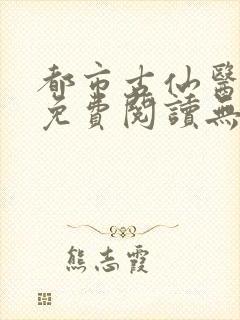 都市古仙醫
免費閱讀無
熊志霞